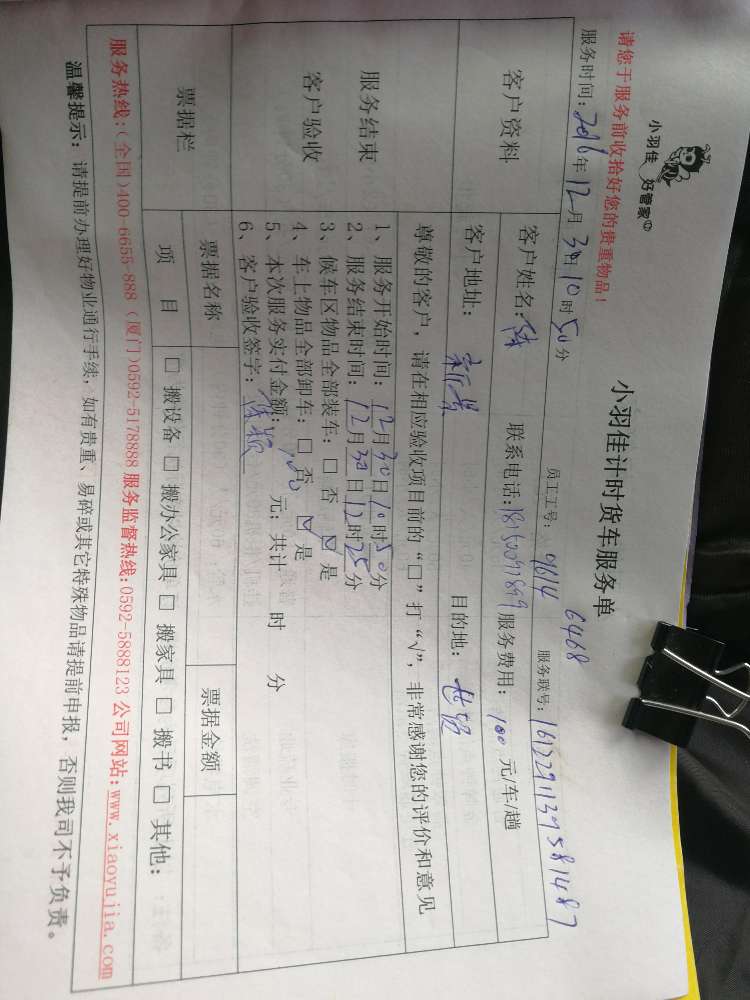 小羽佳 好管家
请您于服务前收拾好您的贵重物品！
小羽佳计时货车服务单
服务时间：2016年12月30日10时50分 员工工号：9614 6468 服务联号：
客户资料 客户姓名：陈 联系电话： 服务费用：100元/车/趟
客户地址： 目的地：
服务结束
客户验收
尊敬的客户，请在相应验收项目前的“□”打“√”，非常感谢您的评价和意见
1、服务开始时间：12月30日10时50分
2、服务结束时间：12月30日12时25分
3、候车区物品全部装车：□ 否 ☑ 是
4、车上物品全部卸车：□ 否 ☑ 是
5、本次服务实付金额： 元；共计 时 分
6、客户验收签字：
票据栏 票据名称 票据金额
项 目 □ 搬设备 □ 搬办公家具 □ 搬家具 □ 搬书 □ 其他：
服务热线：(全国)400-6655-888 (厦门)0592-5178888 服务监督热线:0592-5888123 公司网站:www.xiaoyujia.com
温馨提示：请提前办理好物业通行手续，如有贵重、易碎或其它特殊物品请提前申报，否则我司不予负责。